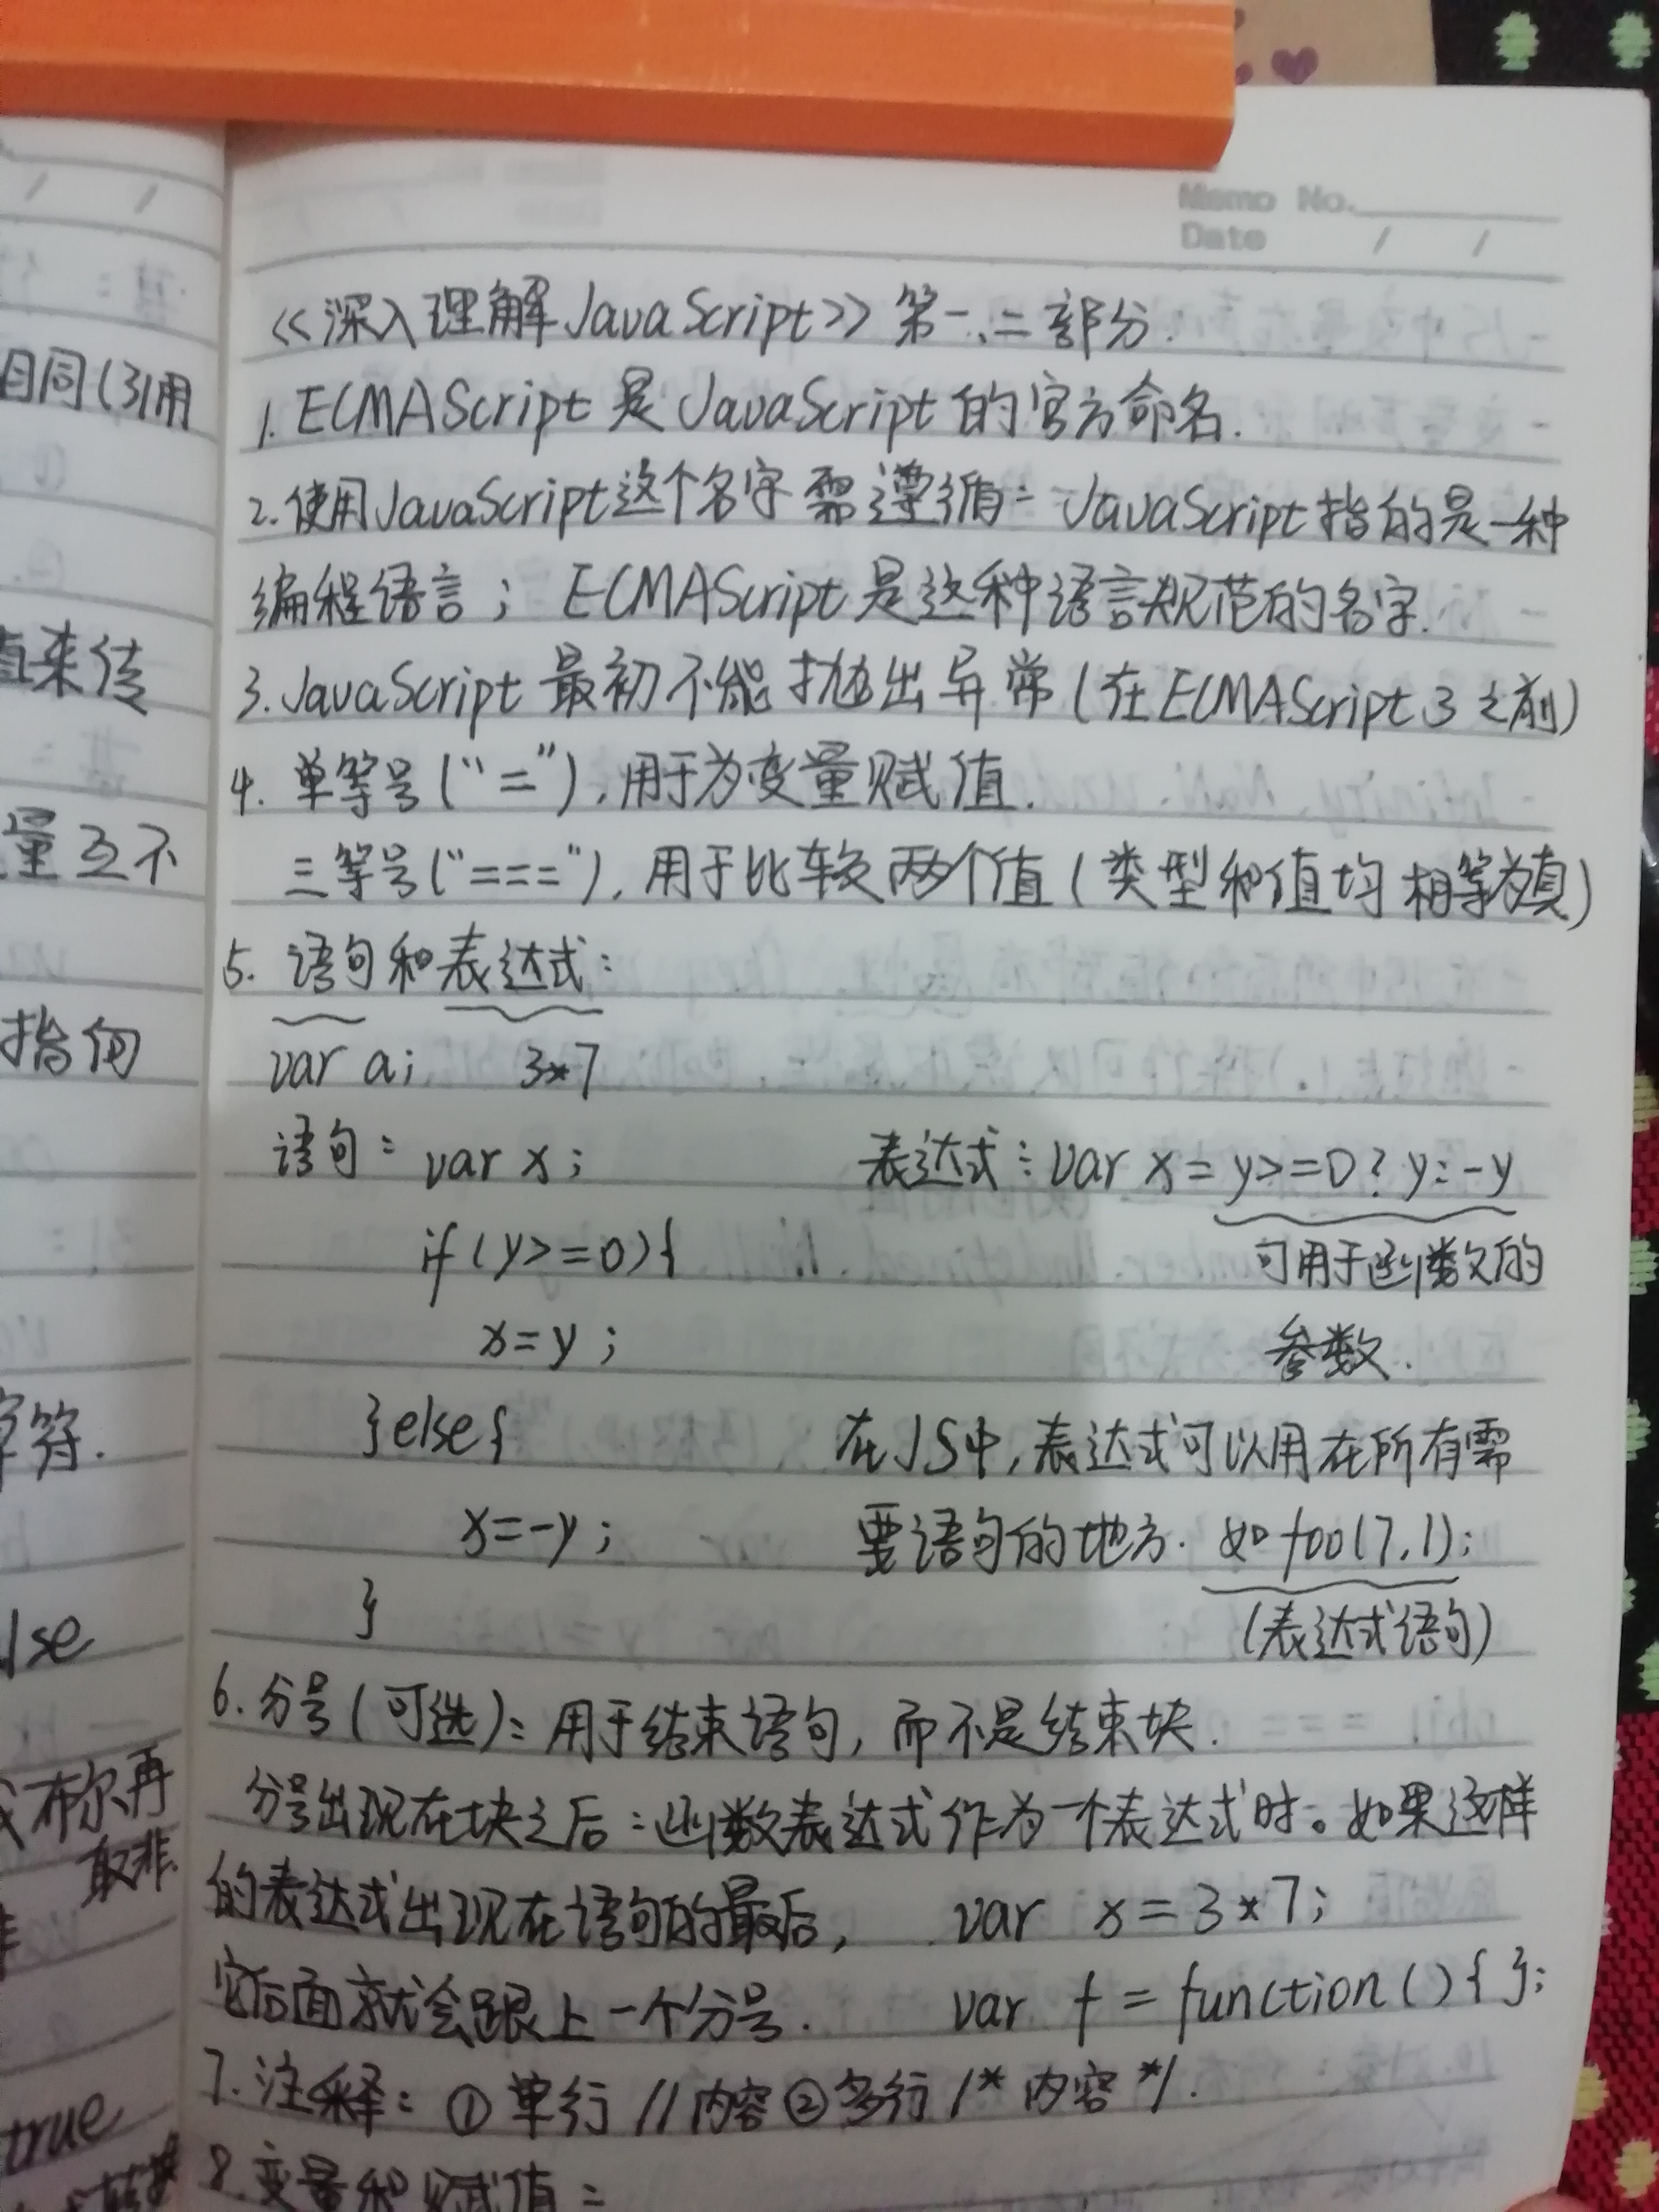 Memo No.
Date / /
<<深入理解JavaScript>> 第一、二部分.
1. ECMAScript 是 JavaScript 的官方命名.
2. 使用JavaScript这个名字需遵循: JavaScript指的是一种
编程语言; ECMAScript是这种语言规范的名字.
3. JavaScript 最初不能抛出异常(在ECMAScript 3 之前)
4. 单等号("="),用于为变量赋值.
三等号("==="),用于比较两个值(类型和值均相等为真)
5. 语句和表达式:
var a; 3*7
语句: var x; 表达式: var x = y>=0? y: -y
if (y>=0){ 可用于函数的
x=y; 参数.
}else{ 在JS中,表达式可以用在所有需
x=-y; 要语句的地方. 如 foo(7,1);
} (表达式语句)
6. 分号(可选): 用于结束语句, 而不是结束块.
分号出现在块之后: 函数表达式作为一个表达式时。如果这样
的表达式出现在语句的最后, var x = 3*7;
它后面就会跟上一个分号. var f = function(){ };
7. 注释: ① 单行 //内容 ②多行 /* 内容 */.
8. 变量和赋值:
目同(引用
直来传
量互不
指向
字符.
lse
布尔再
取非.
true